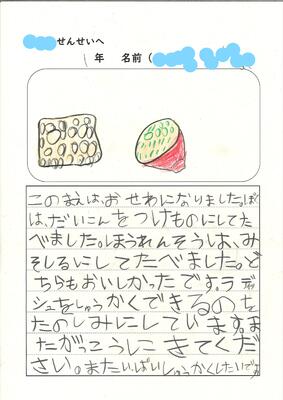 せんせいへ
1年 名前(
このまえは、おせわになりました。ぼく
は、だいこんをつけものにしてた
べました。ほうれんそうは、み
そしるにしてたべました。ど
ちらもおいしかったです。ラディッ
シュをしゅうかくできるのを
たのしみにしています。ま
たがっこうにきてくだ
さい。またいっぱいしゅうかくしたいです